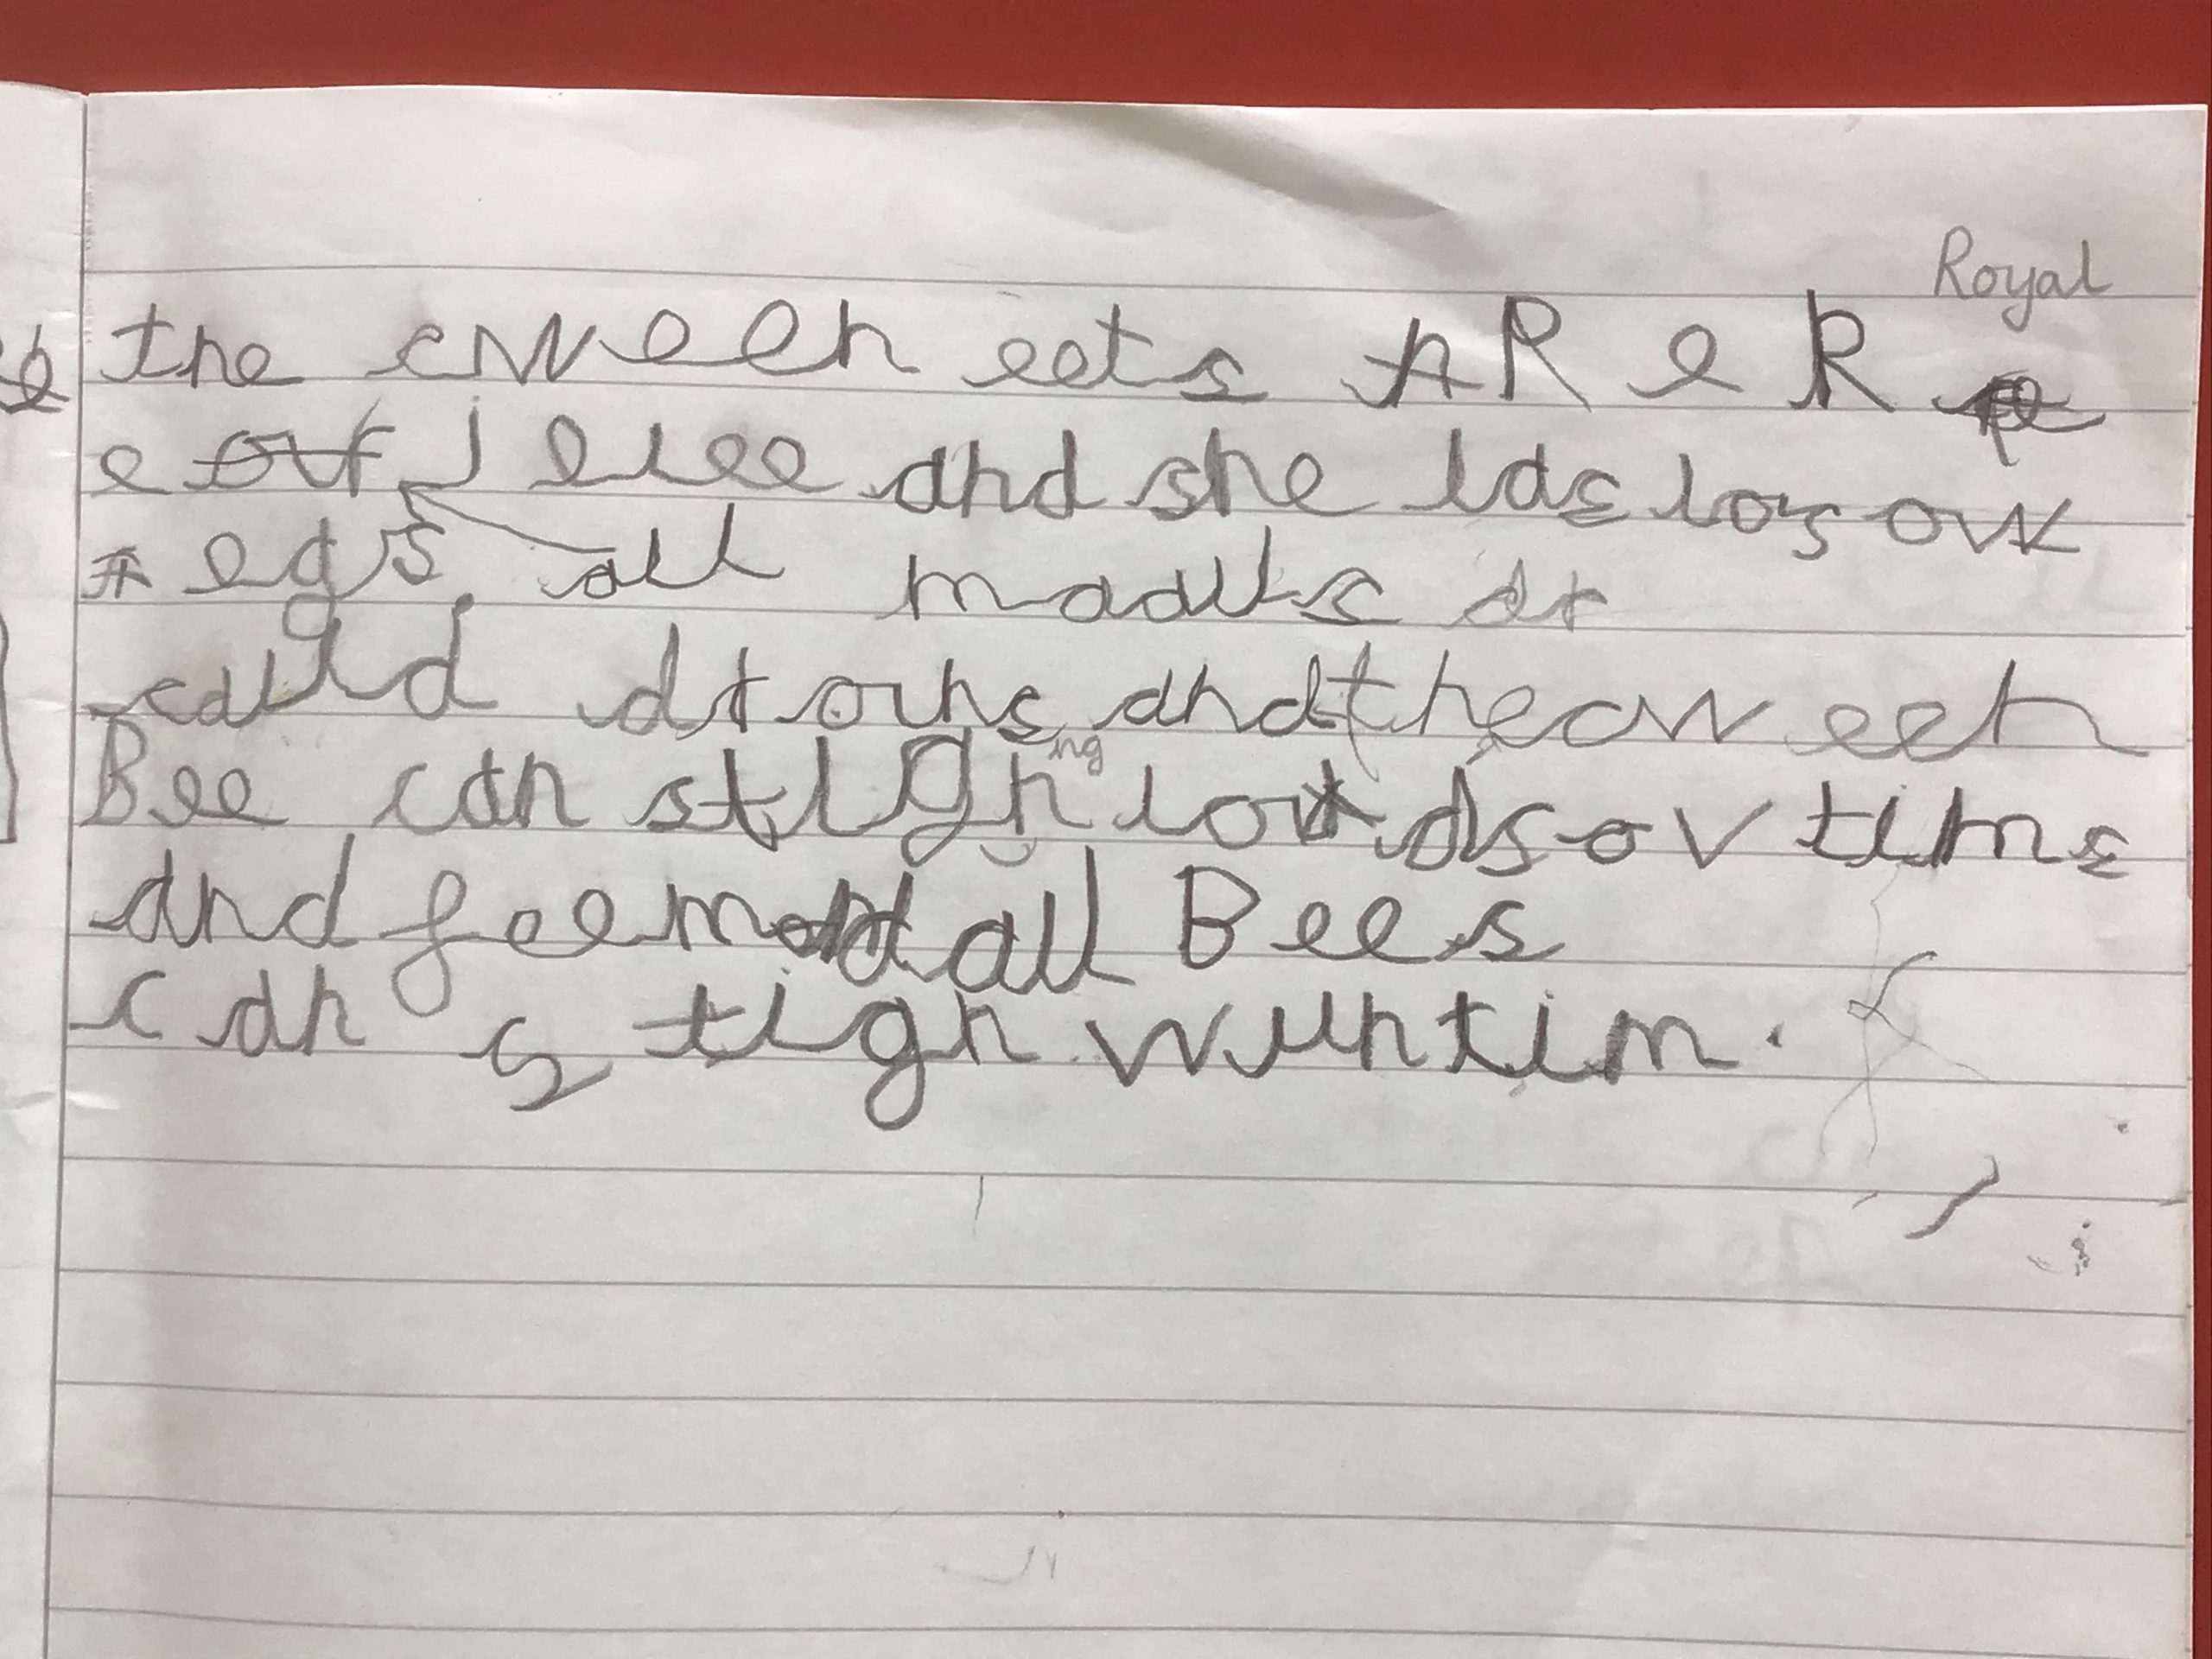 Royal
the cween eets A R e R
e out jelee and she las los ov
egs all maals dr
calld drouns and the cween
ing
Bee can stign lots ov tims
and feemall Bees
can stign wun tim.